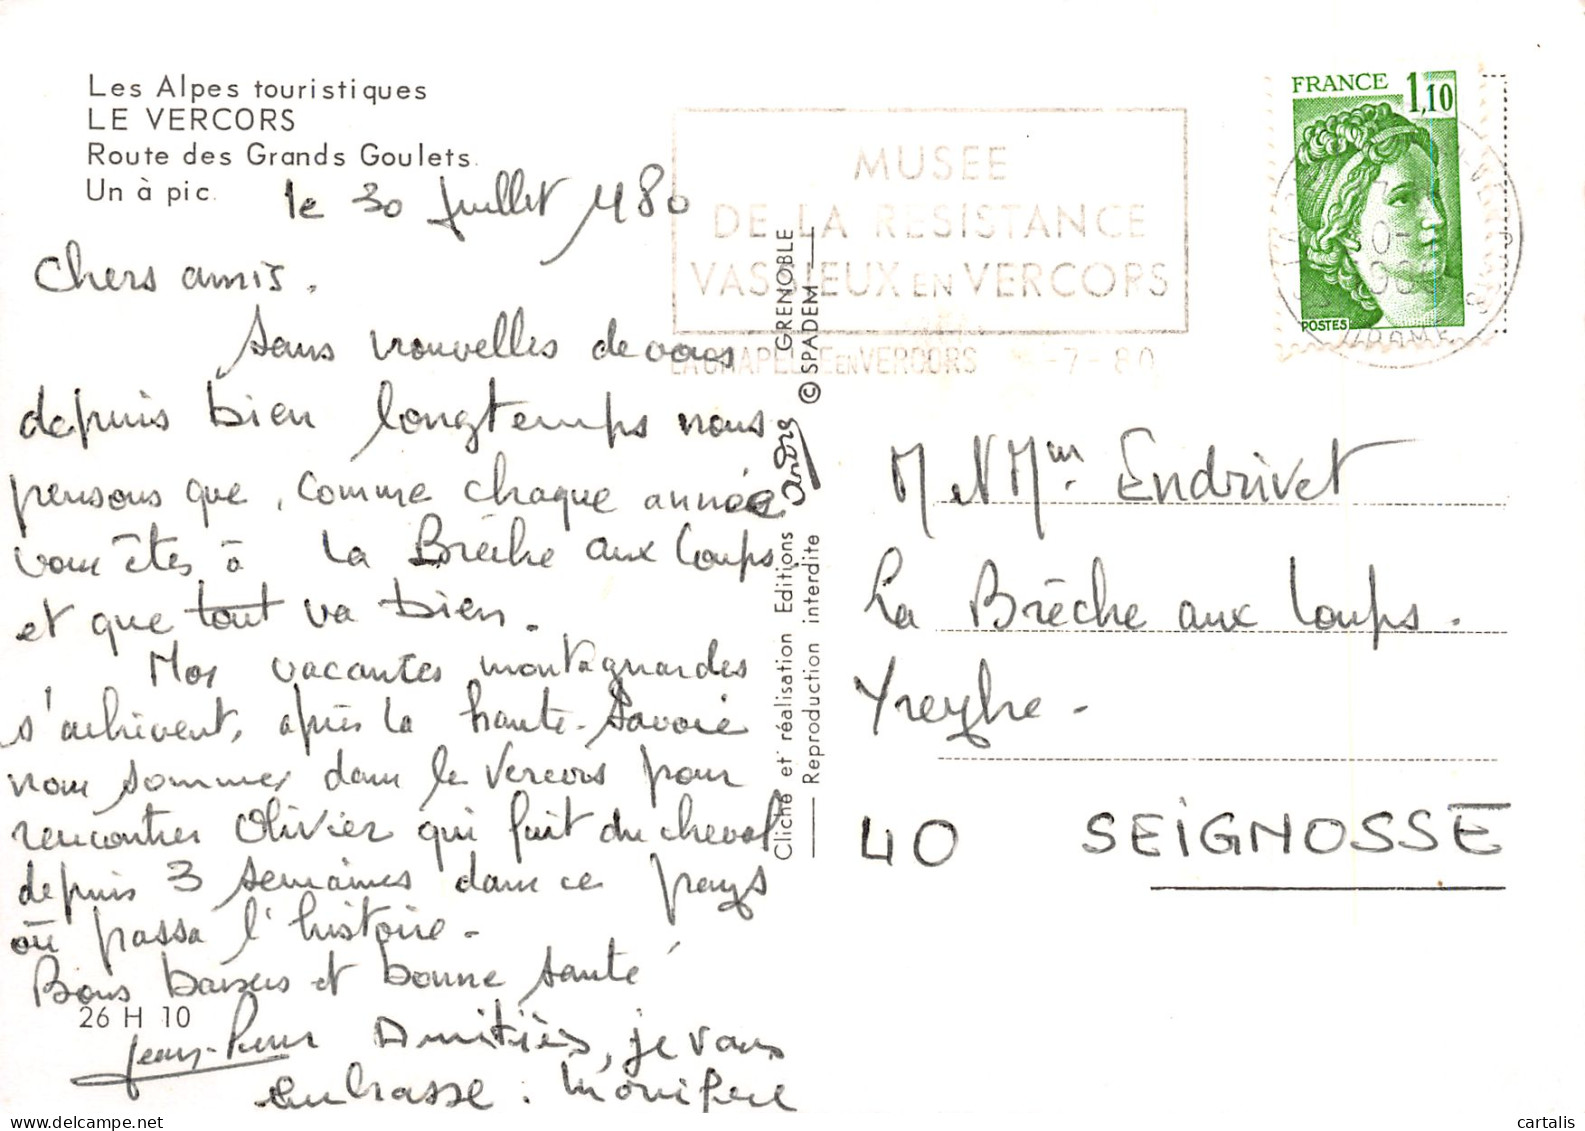 Les Alpes touristiques
LE VERCORS
Route des Grands Goulets.
Un à pic.
le 30 Juillet 1980
Chers amis.
Sans nouvelles de vous
depuis bien longtemps nous
pensons que, comme chaque année
vous êtes à La Brèche aux Loups
et que tout va bien.
Nos vacances montagnardes
s'achèvent, après la haute-Savoie
nous sommes dans le Vercors pour
rencontrer Olivier qui fait du cheval
depuis 3 semaines dans ce pays
où passa l'histoire.
Bons baisers et bonne santé
26 H 10
Jean-Pierre Amitiés, je vous
embrasse.
Cliché et réalisation Editions André GRENOBLE
Reproduction interdite © SPADEM
MUSEE
DE LA RESISTANCE
VASSIEUX EN VERCORS
LA CHAPELLE EN VERCORS -7-80
FRANCE 1,10
POSTES
DROME
M et Mme. Endrivet
La Brèche aux Loups.
40 SEIGNOSSE
cartalis
www.delcampe.net